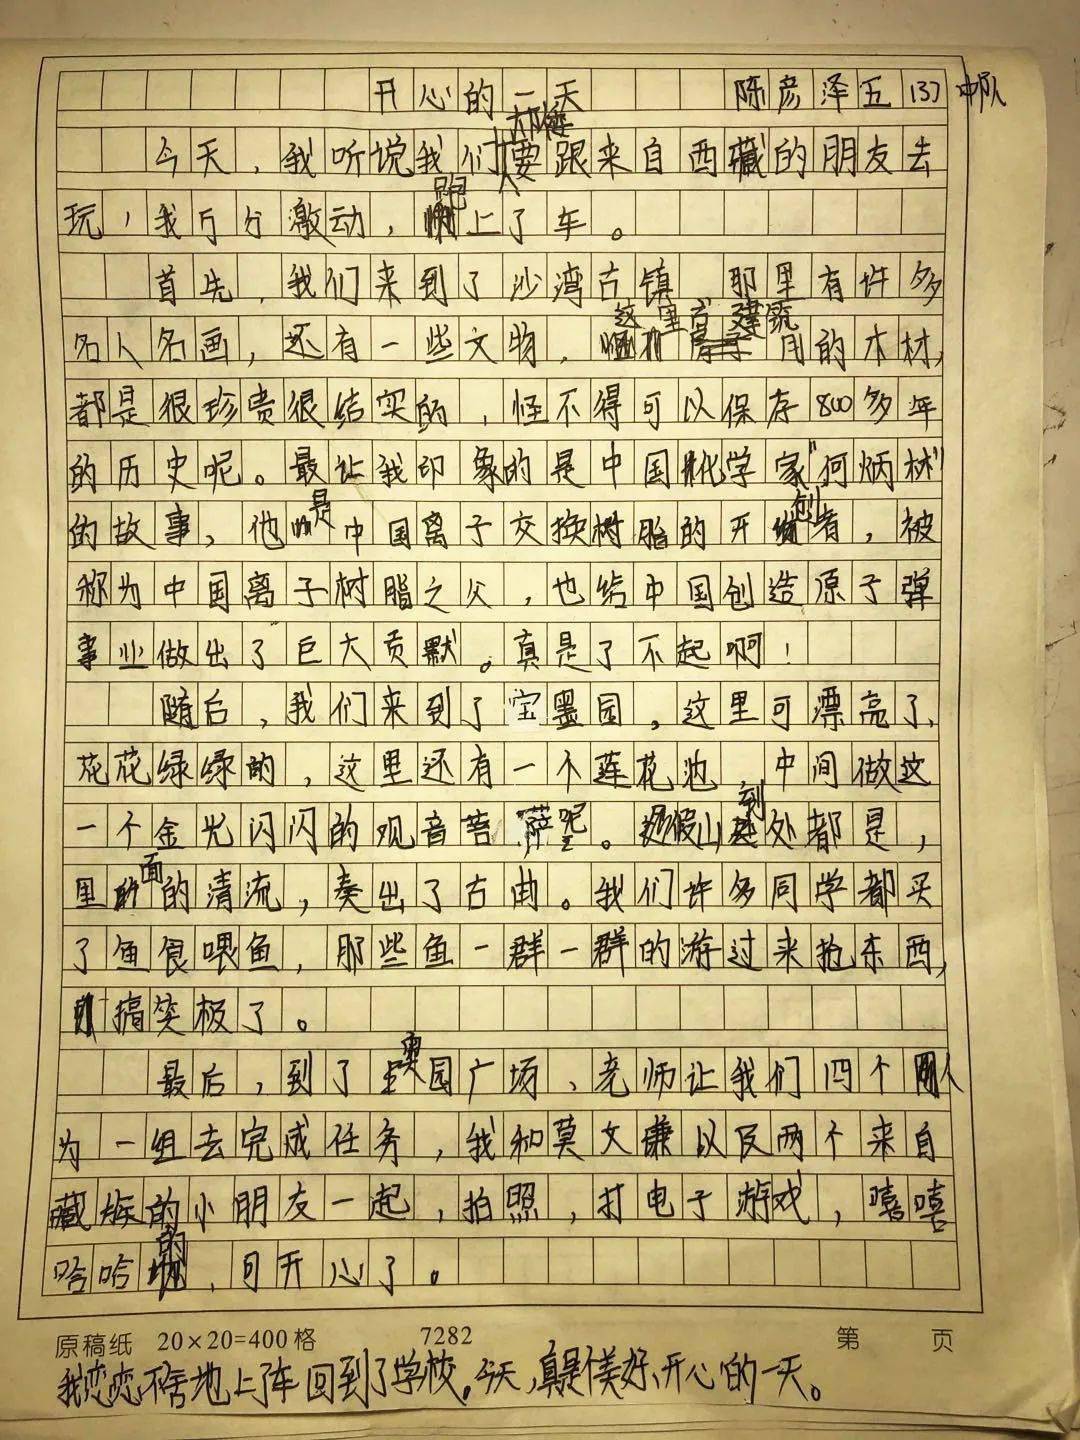 开心的一天 陈彦泽五(3)中队
今天，我听说我们要跟来自西藏的朋友去
玩，我万分激动，跑上了车。
首先，我们来到了沙湾古镇 那里有许多
名人名画，还有一些文物，这里古建筑用的木材，
都是很珍贵很结实的，怪不得可以保存800多年
的历史呢。最让我印象的是中国化学家"何炳林"
的故事，他是中国离子交换树脂的开创者，被
称为中国离子树脂之父，也给中国创造原子弹
事业做出了巨大贡默。真是了不起啊！
随后，我们来到了宝墨园。这里可漂亮了、
花花绿绿的，这里还有一个莲花池 中间做这
一个金光闪闪的观音菩萨呢。假山到处都是，
里面的清流，奏出了古曲。我们许多同学都买
了鱼食喂鱼，那些鱼一群一群的游过来抢东西，
搞笑极了。
最后，到了奥园广场、老师让我们四个人
为一组去完成任务，我和莫文谦以及两个来自
藏族的小朋友一起，拍照，打电子游戏，嘻嘻
哈哈的，可开心了。
原稿纸 20×20=400格 7282 第 页
我恋恋不舍地上了车回到了学校。今天，真是个美好、开心的一天。